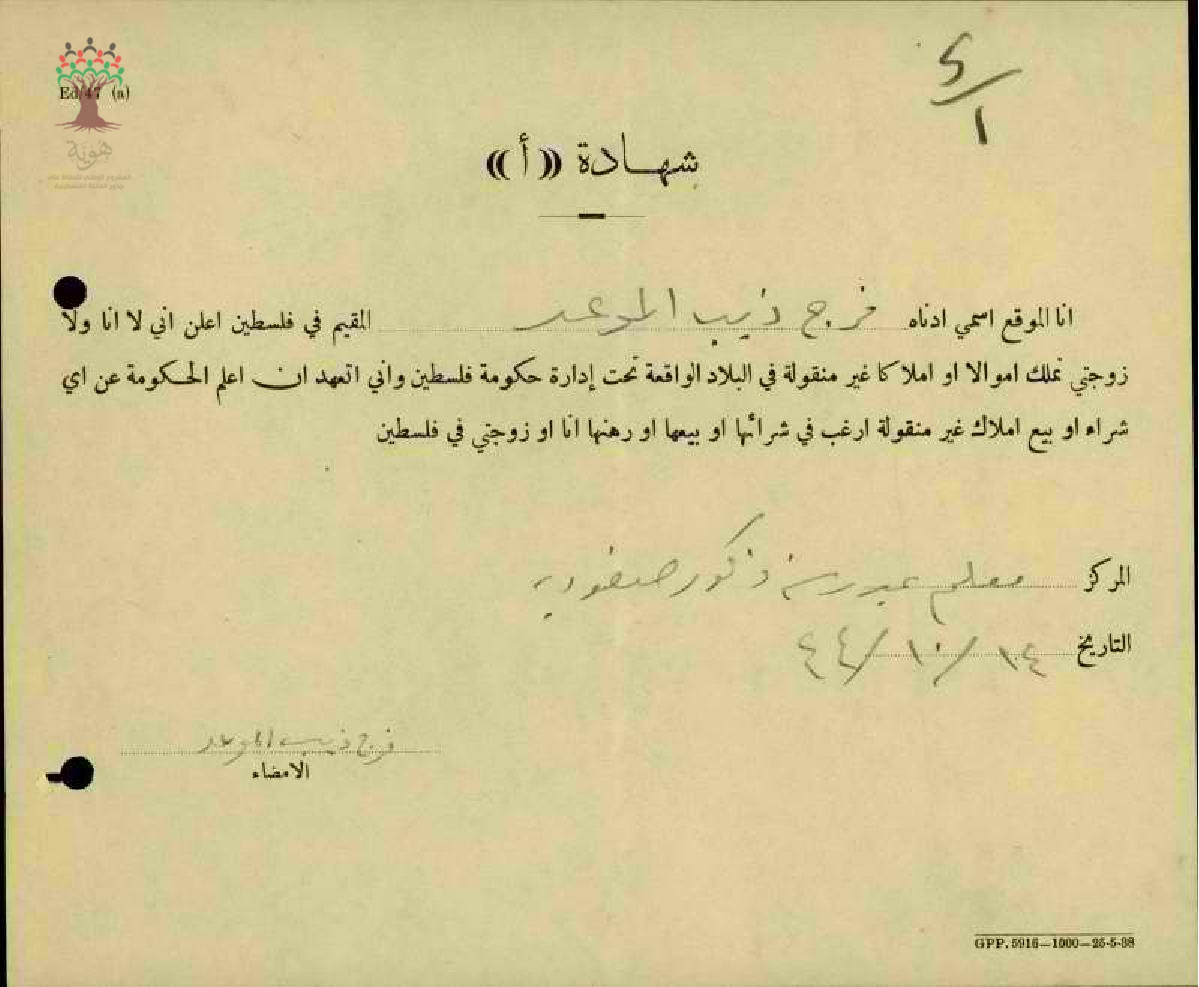 Ed/47 (a)
٥/١
هوية
المشروع الوطني للحفاظ على
جذور العائلة الفلسطينية
شهادة «أ»
انا الموقع اسمي ادناه فرج ذيب الموعد المقيم في فلسطين اعلن اني لا انا ولا
زوجتي نملك اموالا او املاكا غير منقولة في البلاد الواقعة تحت إدارة حكومة فلسطين واني اتعهد ان اعلم الحكومة عن اي
شراء او بيع املاك غير منقولة ارغب في شرائها او بيعها او رهنها انا او زوجتي في فلسطين
المركز معلم بمدرسة ذكور صفوريه
التاريخ ١٤/١٠/٤٤
فرج ذيب الموعد
الامضاء
GPP. 5916—1000—25-5-38